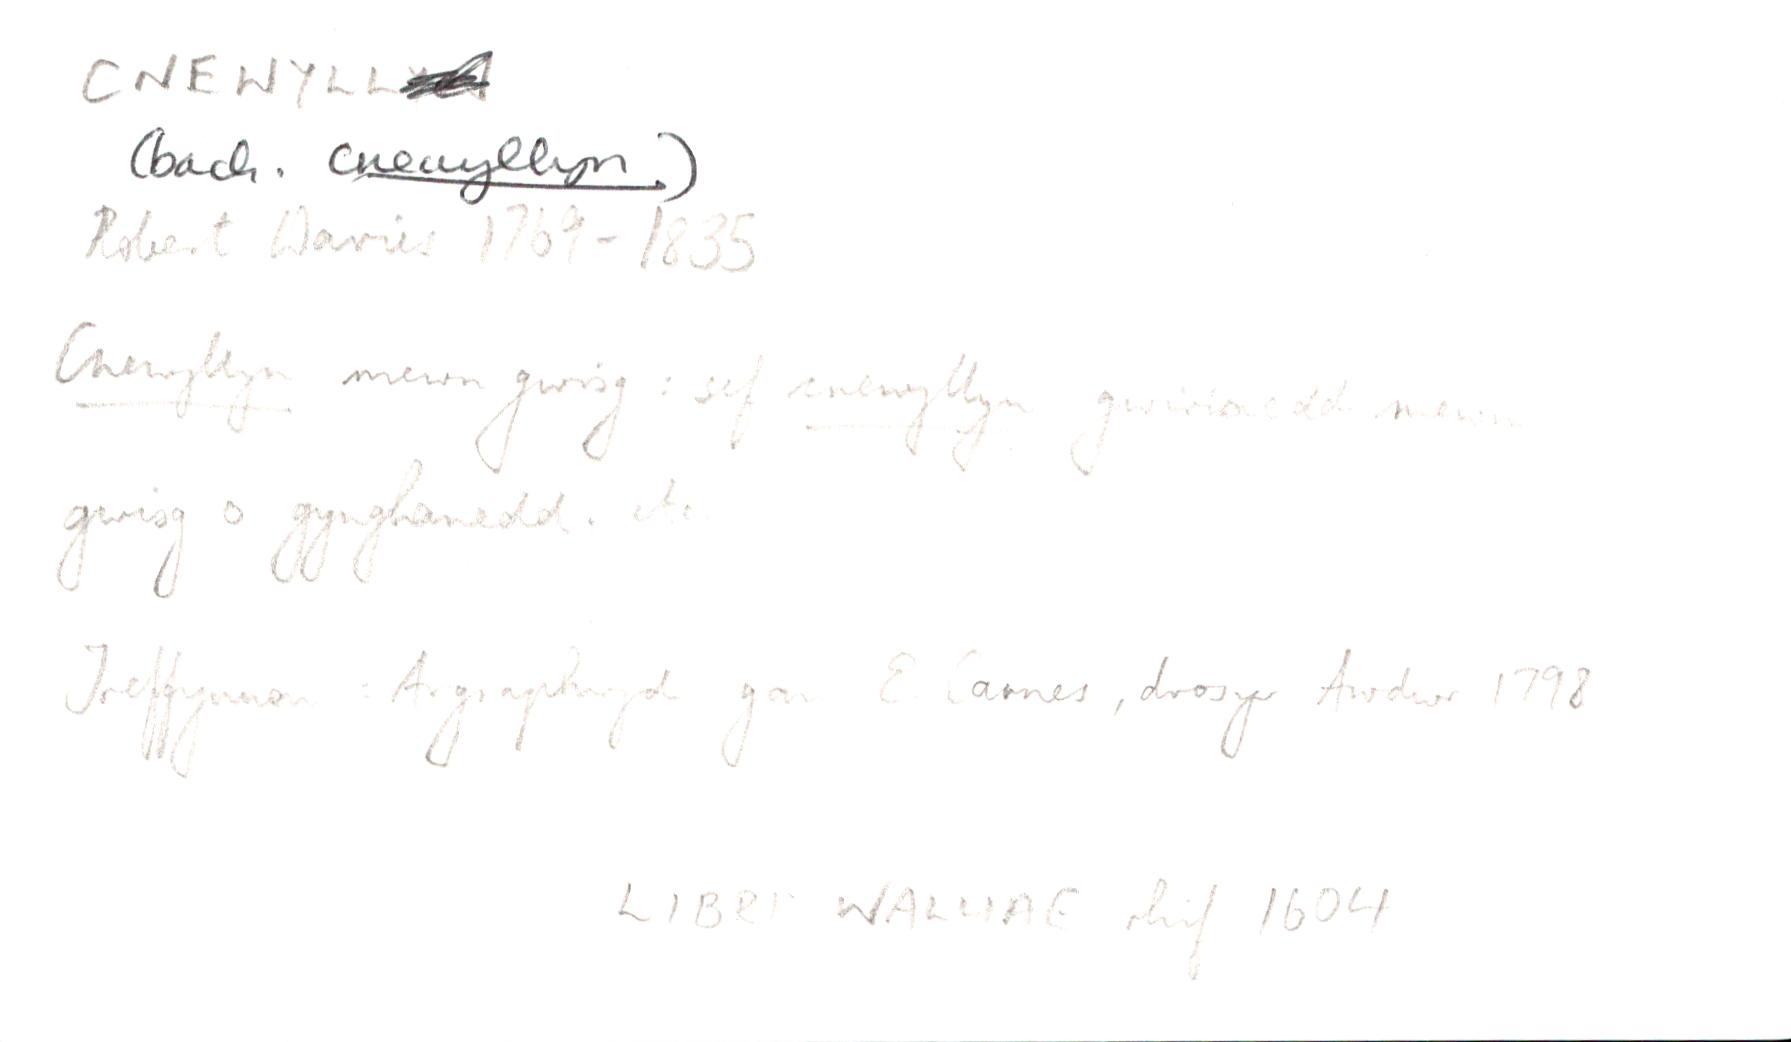 CNEWYLL
(bach. cnewyllyn.)
Robert Davies 1769-1835
Cnewyllyn mewn gwisg: sef cnewyllyn gwirionedd mewn
gwisg o gynghanedd. etc.
Treffynnon: Argraphwyd gan E. Carnes, dros yr Awdwr 1798
LIBRI WALLIAE rhif 1604